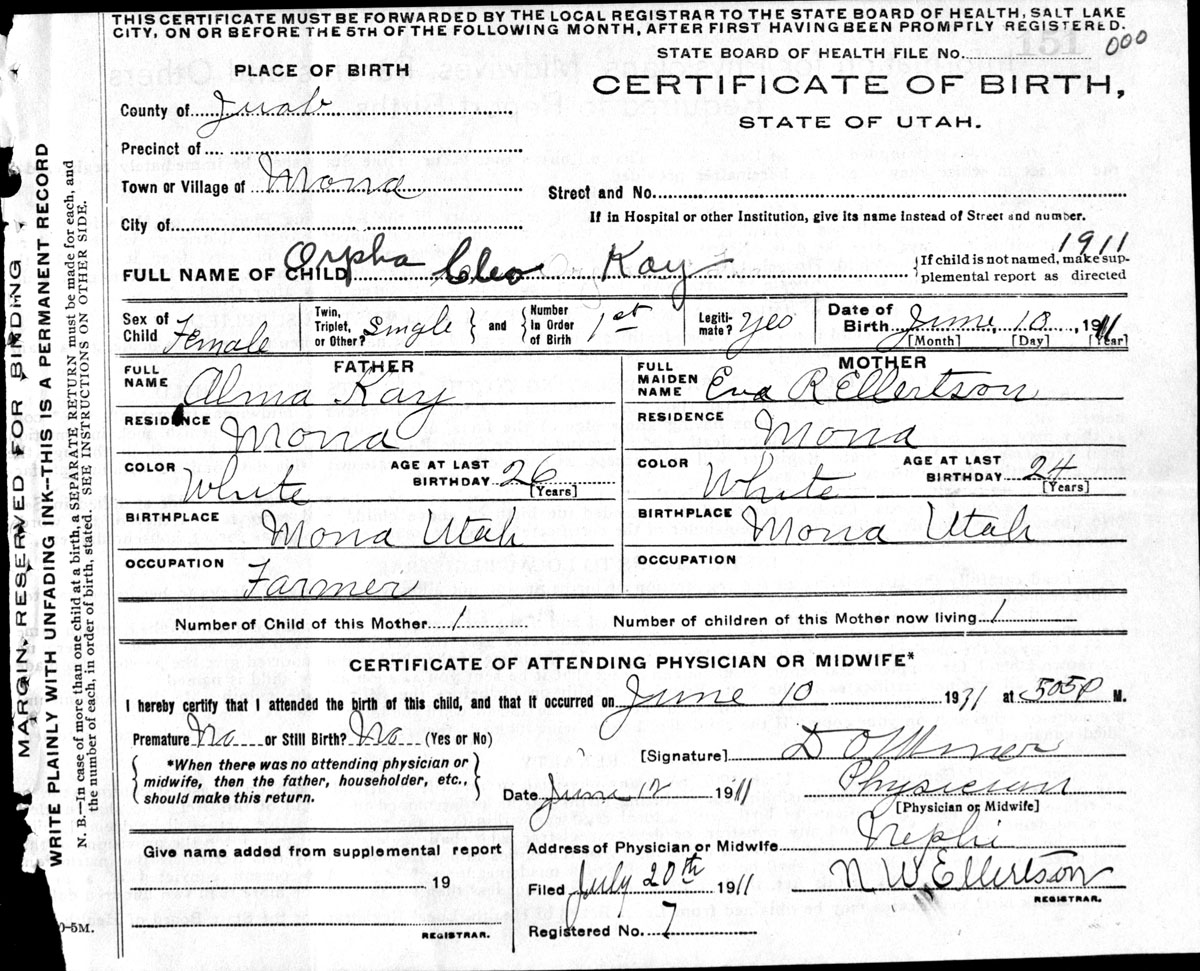 THIS CERTIFICATE MUST BE FORWARDED BY THE LOCAL REGISTRAR TO THE STATE BOARD OF HEALTH, SALT LAKE
CITY, ON OR BEFORE THE 5TH OF THE FOLLOWING MONTH, AFTER FIRST HAVING BEEN PROMPTLY REGISTERED.
STATE BOARD OF HEALTH FILE No. 000
PLACE OF BIRTH
CERTIFICATE OF BIRTH,
STATE OF UTAH.
County of Juab
Precinct of
Town or Village of Mona
Street and No.
If in Hospital or other Institution, give its name instead of Street and number.
City of
1911
FULL NAME OF CHILD Orpha Cleo Kay {If child is not named, make sup-
plemental report as directed
Sex of Child Female Twin, Triplet, or Other? Single } and { Number In Order of Birth 1st Legiti-mate? Yes Date of Birth June, 10, 1911
[Month] [Day] [Year]
FATHER
FULL NAME Alma Kay
RESIDENCE Mona
COLOR White AGE AT LAST BIRTHDAY 26
[Years]
BIRTHPLACE Mona Utah
OCCUPATION Farmer
MOTHER
FULL MAIDEN NAME Eva R Ellertson
RESIDENCE Mona
COLOR White AGE AT LAST BIRTHDAY 24
[Years]
BIRTHPLACE Mona Utah
OCCUPATION
Number of Child of this Mother 1 Number of children of this Mother now living 1
CERTIFICATE OF ATTENDING PHYSICIAN OR MIDWIFE*
I hereby certify that I attended the birth of this child, and that it occurred on June 10 19 at M.
Premature No or Still Birth? No (Yes or No)
{ *When there was no attending physician or
midwife, then the father, householder, etc.,
should make this return. }
[Signature] D O Miner
Physician
[Physician or Midwife]
Date June 12 1911
Address of Physician or Midwife Nephi
Given name added from supplemental report
19
REGISTRAR.
Filed July 20th 1911 N W Ellertson
REGISTRAR.
Registered No. 7
MARGIN RESERVED FOR BINDING
WRITE PLAINLY WITH UNFADING INK—THIS IS A PERMANENT RECORD
N. B.—In case of more than one child at a birth, a SEPARATE RETURN must be made for each, and
the number of each, in order of birth, stated. SEE INSTRUCTIONS ON OTHER SIDE.
0-5M.